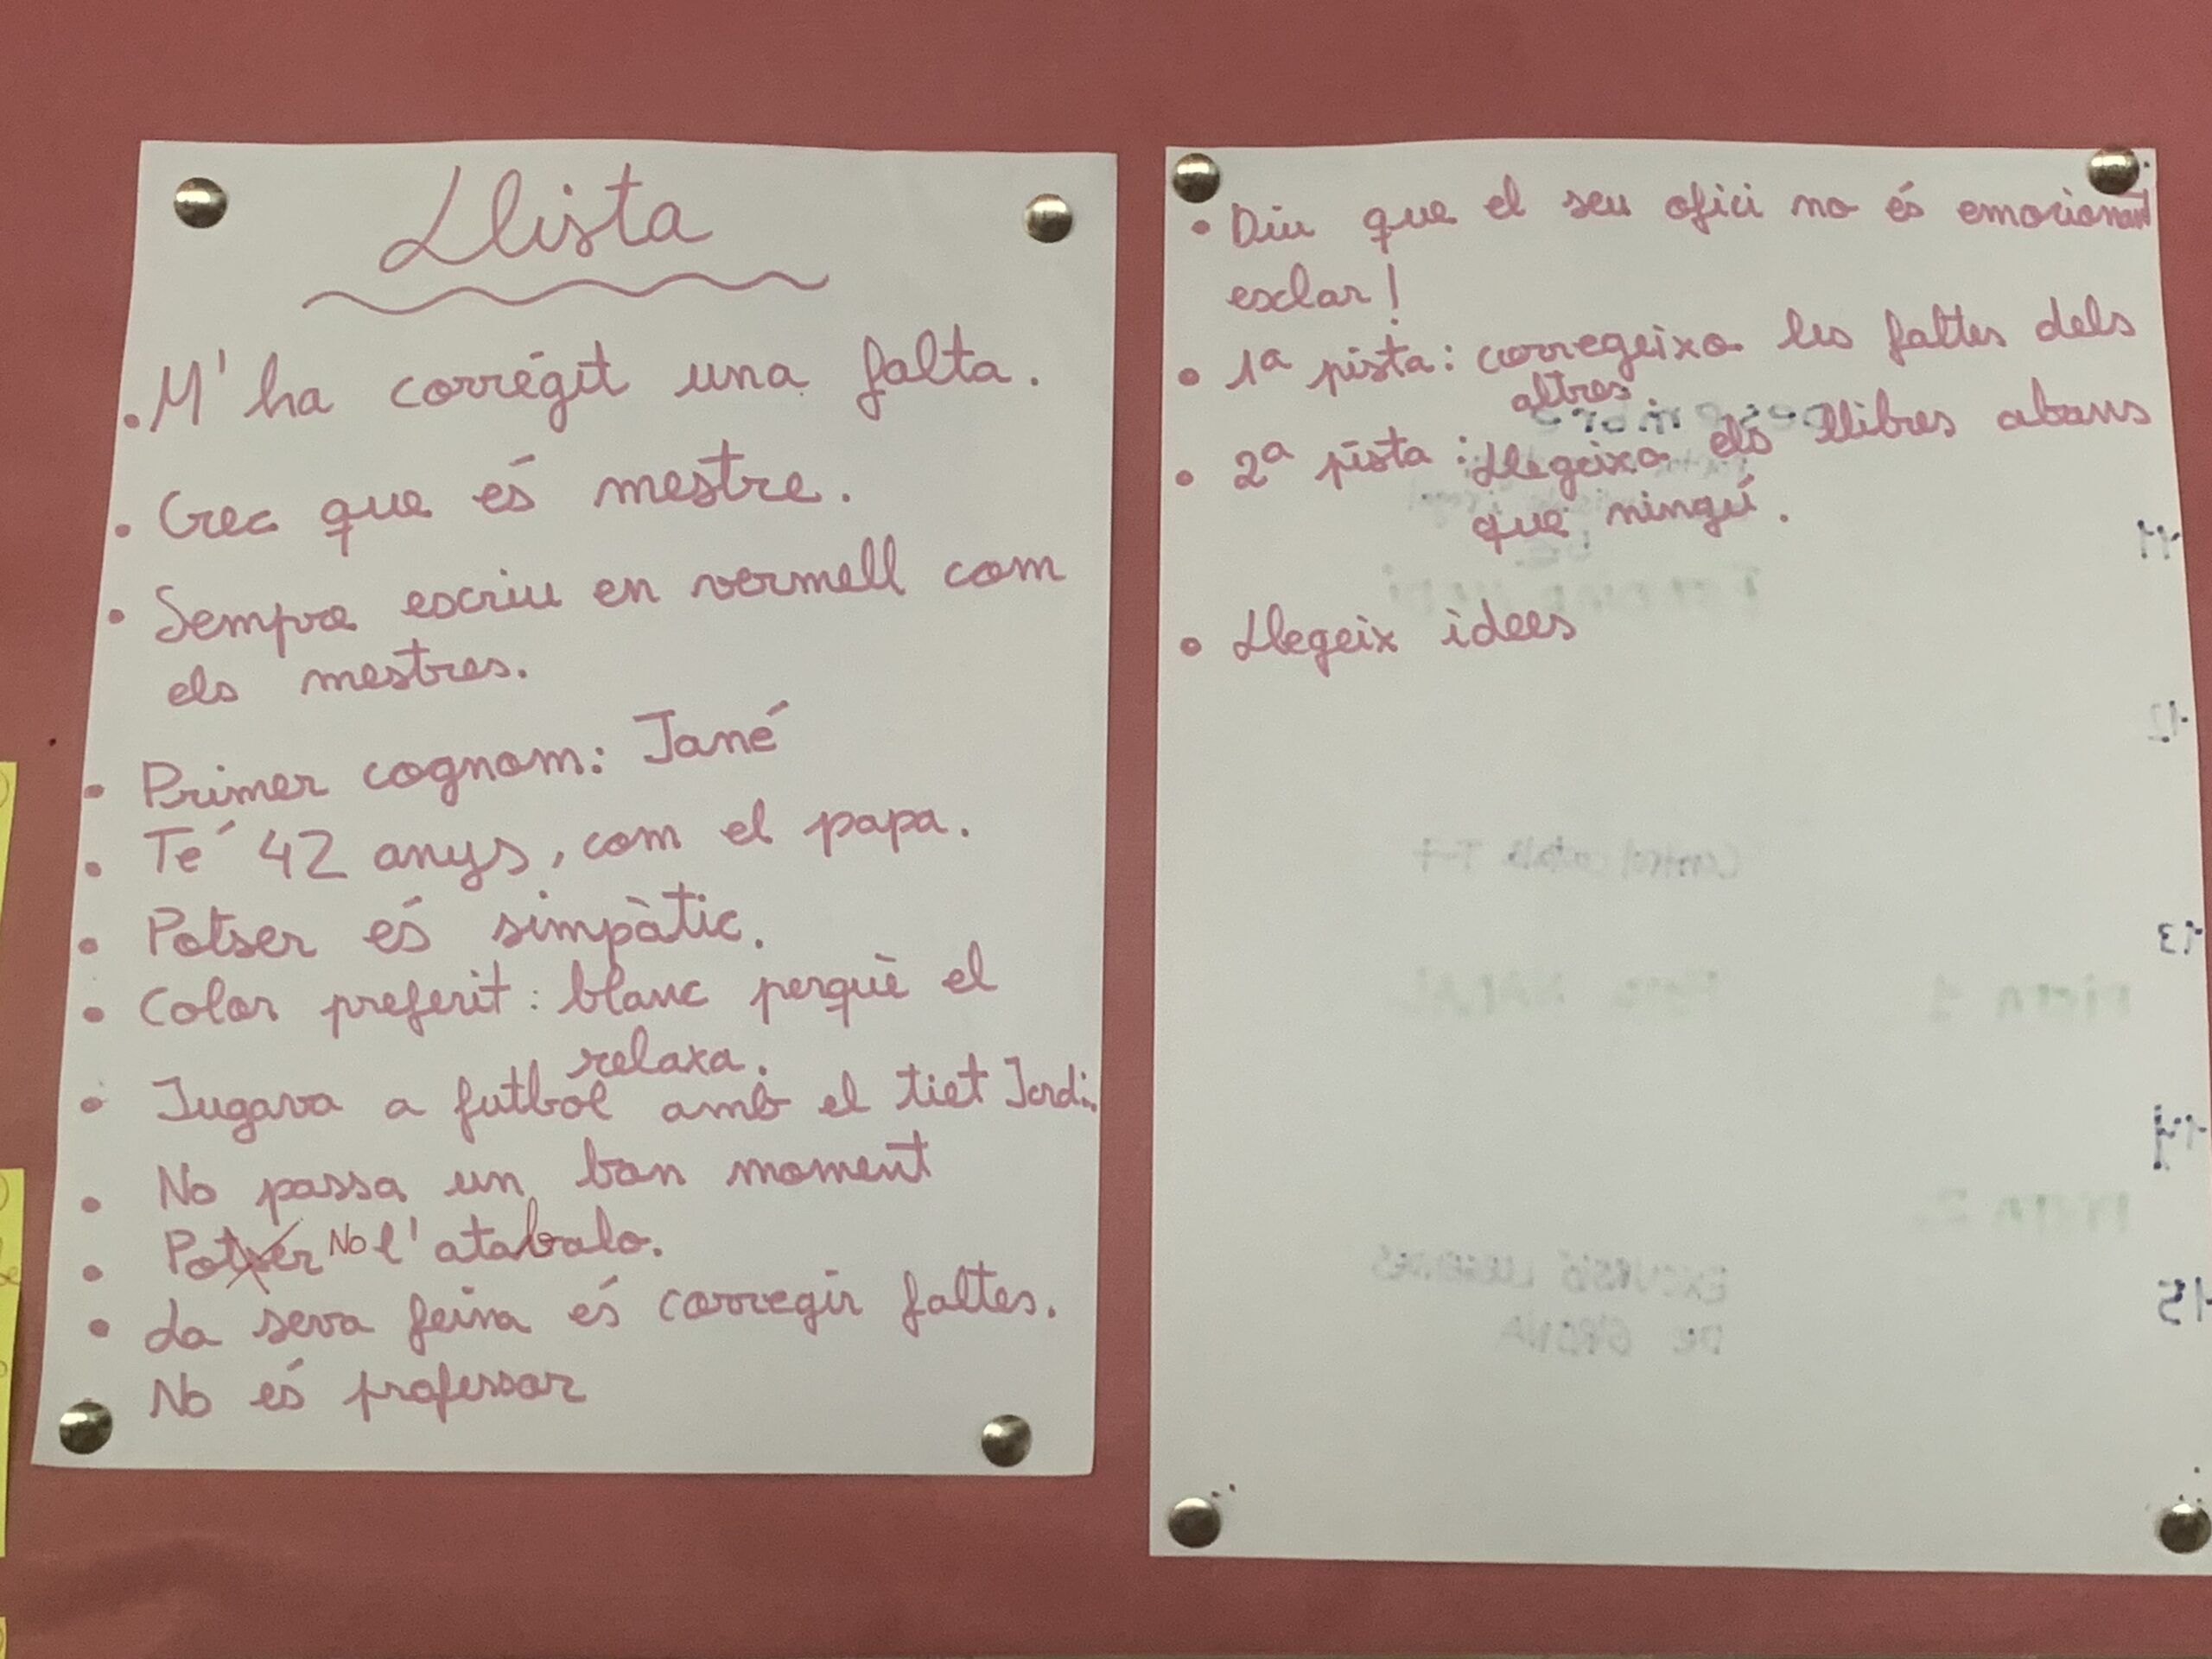 Llista
• M'ha corregit una falta.
• Crec que és mestre.
• Sempre escriu en vermell com
els mestres.
• Primer cognom: Jané
• Té 42 anys, com el papa.
• Potser és simpàtic.
• Color preferit: blanc perquè el
relaxa.
• Jugava a futbol amb el tiet Jordi.
• No passa un bon moment
• Potser No l'atabalo.
• La seva feina és corregir faltes.
No és professor
• Diu que el seu ofici no és emocionant
esclar!
• 1a pista: corregeixo les faltes dels
altres
• 2a pista: Llegeixo els llibres abans
que ningú.
• Llegeix idees
11
12
Control català T-7
13
PISTA 1
14
PISTA 2
EXCURSIÓ LLEGENDES
DE GIRONA
15